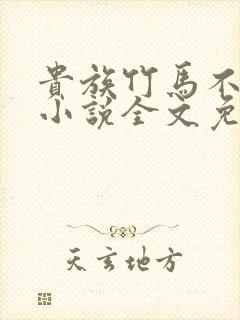 貴族竹馬不
小說全文免
天玄地方